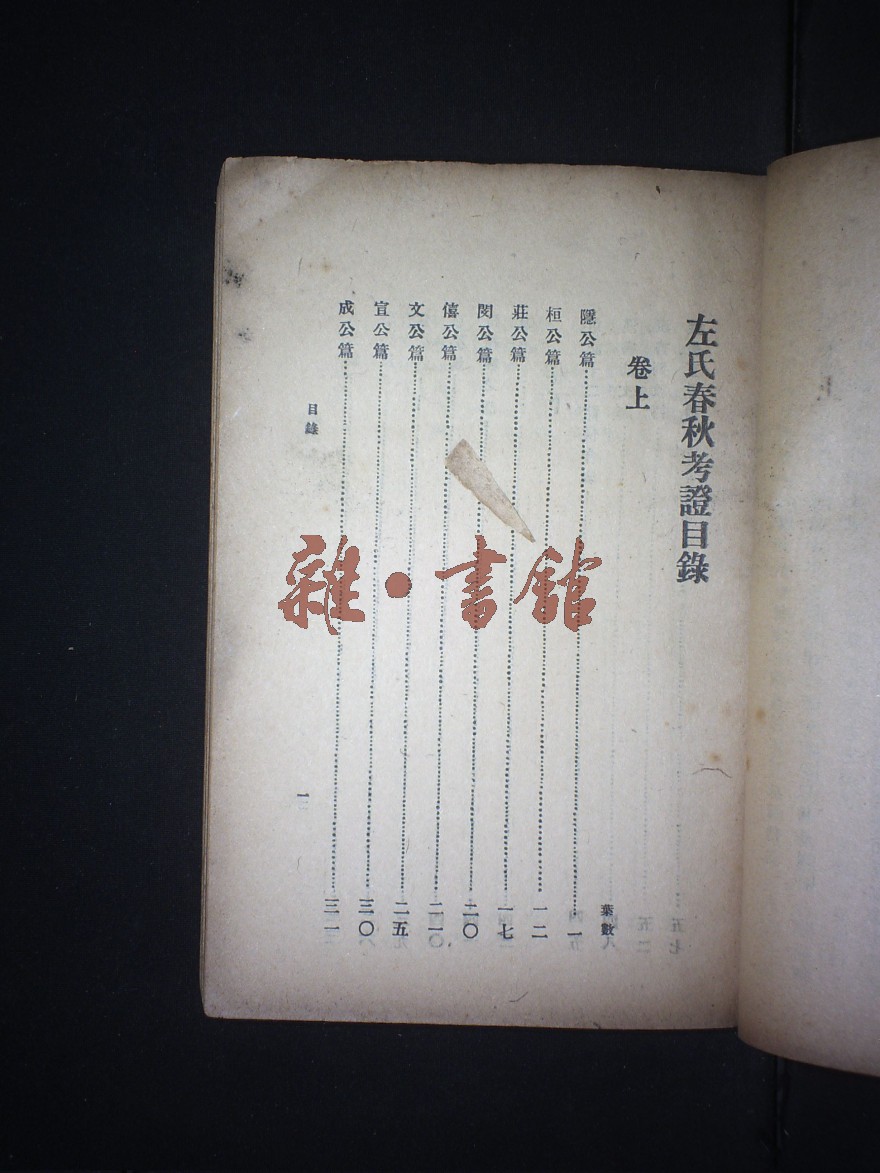 左氏春秋考證目錄
卷上
葉數
隱公篇 一
桓公篇 一二
莊公篇 一七
閔公篇 二〇
僖公篇
文公篇 二五
宣公篇 三〇
成公篇 三一
目錄
一
雜·書館